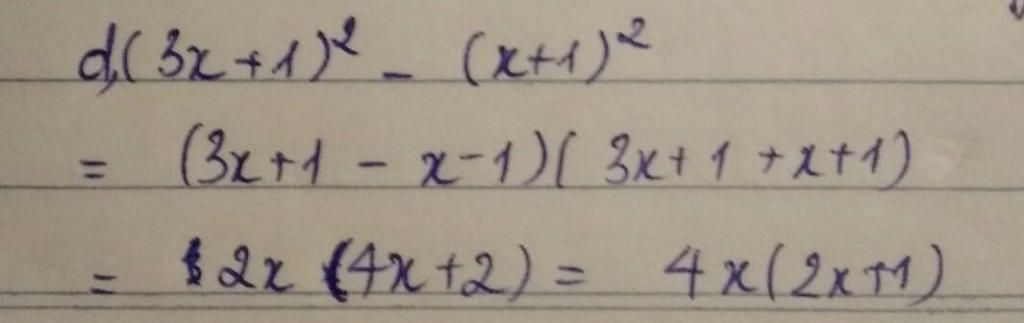 d, (3x+1)² - (x+1)²
= (3x+1 - x-1)(3x+1+x+1)
= 2x (4x+2) = 4x(2x+1)